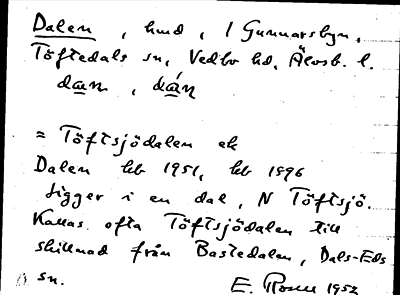 Dalen, hmd, 1 Gunnarsbyn,
Töftedals sn, Vedbo hd, Älvsb. l.
dan, dán
= Töftsjödalen ek
Dalen kb 1951, kb 1896
Ligger i en dal, N Töftsjö.
Kallas ofta Töftsjödalen till
skillnad från Bastedalen, Dals-Eds
sn.
E. 1952